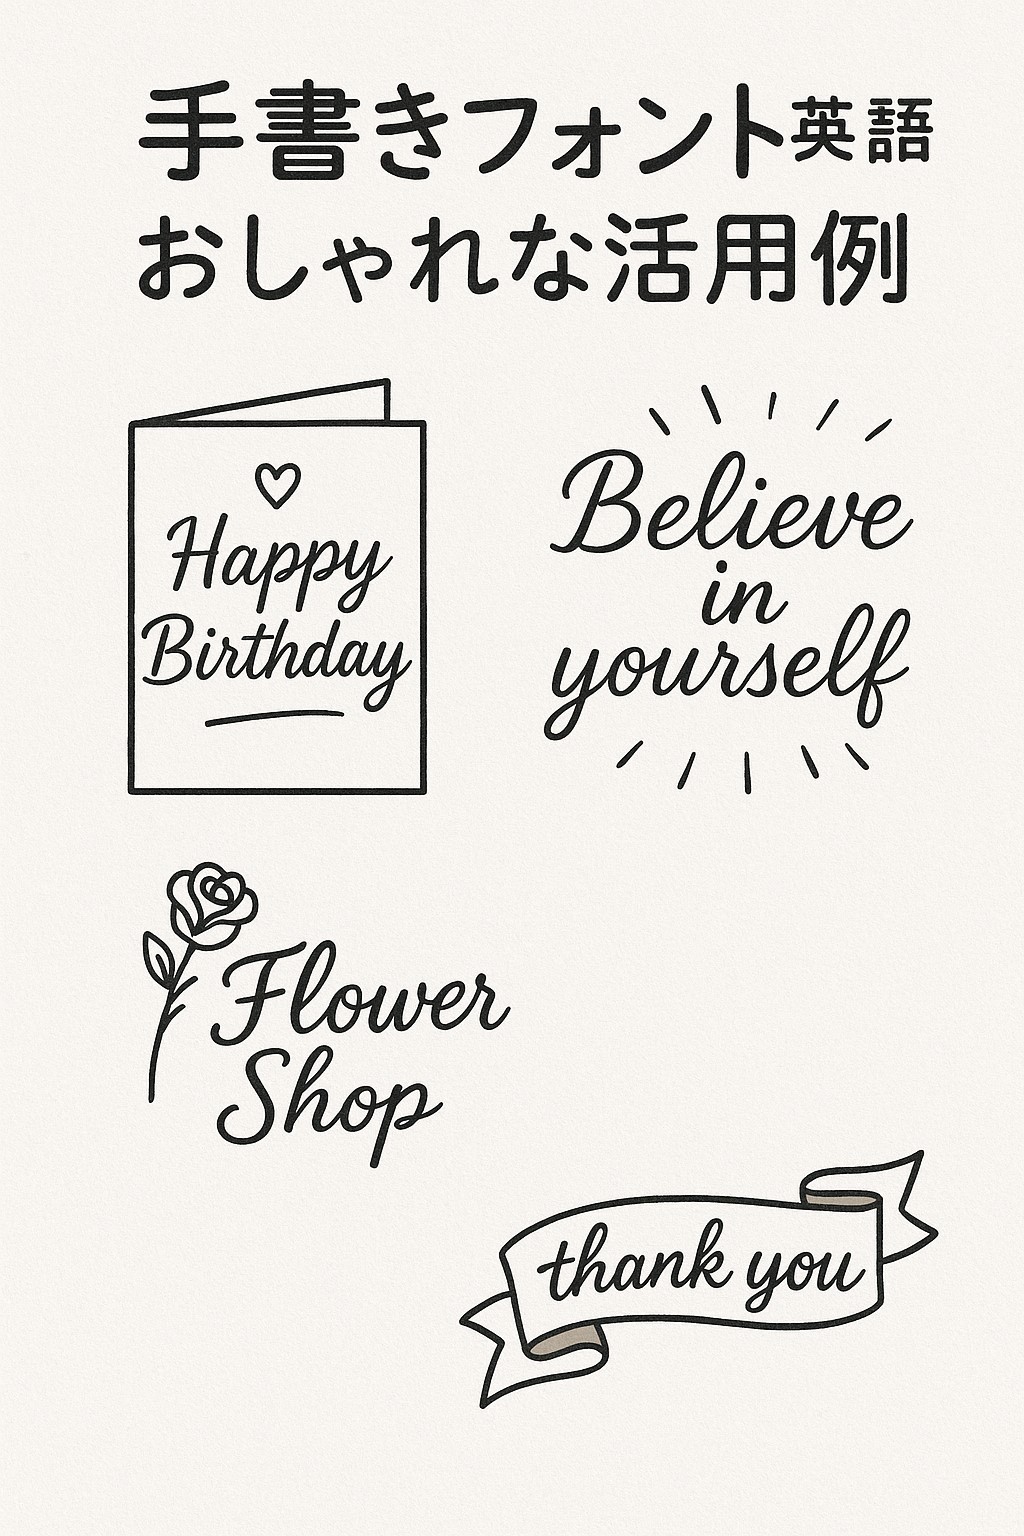 手書きフォント英語
おしゃれな活用例
Happy
Birthday
Believe
in
yourself
Flower
Shop
thank you